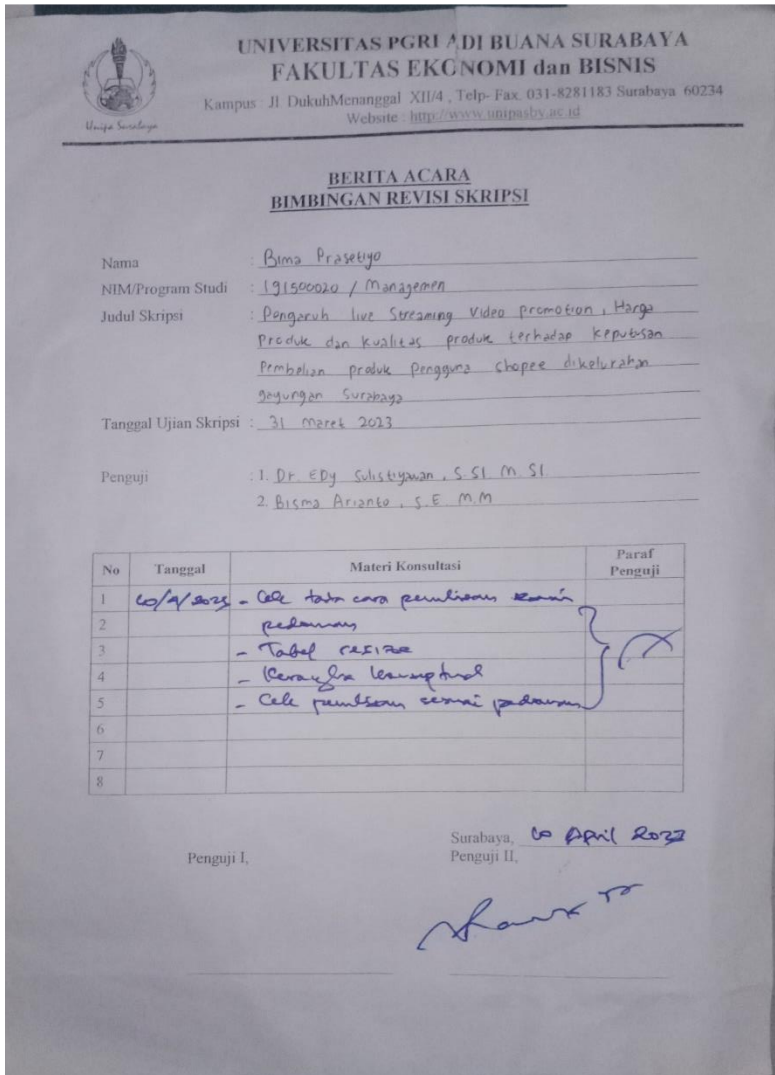 UNIVERSITAS PGRI ADI BUANA SURABAYA
FAKULTAS EKONOMI dan BISNIS
Kampus : Jl DukuhMenanggal XII/4 , Telp- Fax. 031-8281183 Surabaya 60234
Website : http://www.unipasby.ac.id
Unipa Surabaya
BERITA ACARA
BIMBINGAN REVISI SKRIPSI
Nama : Bima Prasetiyo
NIM/Program Studi : 191500020 / Managemen
Judul Skripsi : Pengaruh live Streaming Video promotion , Harga
Produk dan Kualitas produk terhadap keputusan
Pembelian produk Pengguna chopee dikelurahan
gayungan Surabaya
Tanggal Ujian Skripsi : 31 Maret 2023
Penguji : 1. Dr. EDy Sulistiyawan , S.SI. M.SI.
2. Bisma Arianto , S.E M.M
No Tanggal Materi Konsultasi Paraf Penguji
1 - Cek tata cara penulisan sesuai
2 pedoman
3 - Tabel resize
4 - Kerangka konseptual
5 - Cek penulisan sesuai pedoman
6
7
8
Surabaya, April 2023
Penguji I, Penguji II,